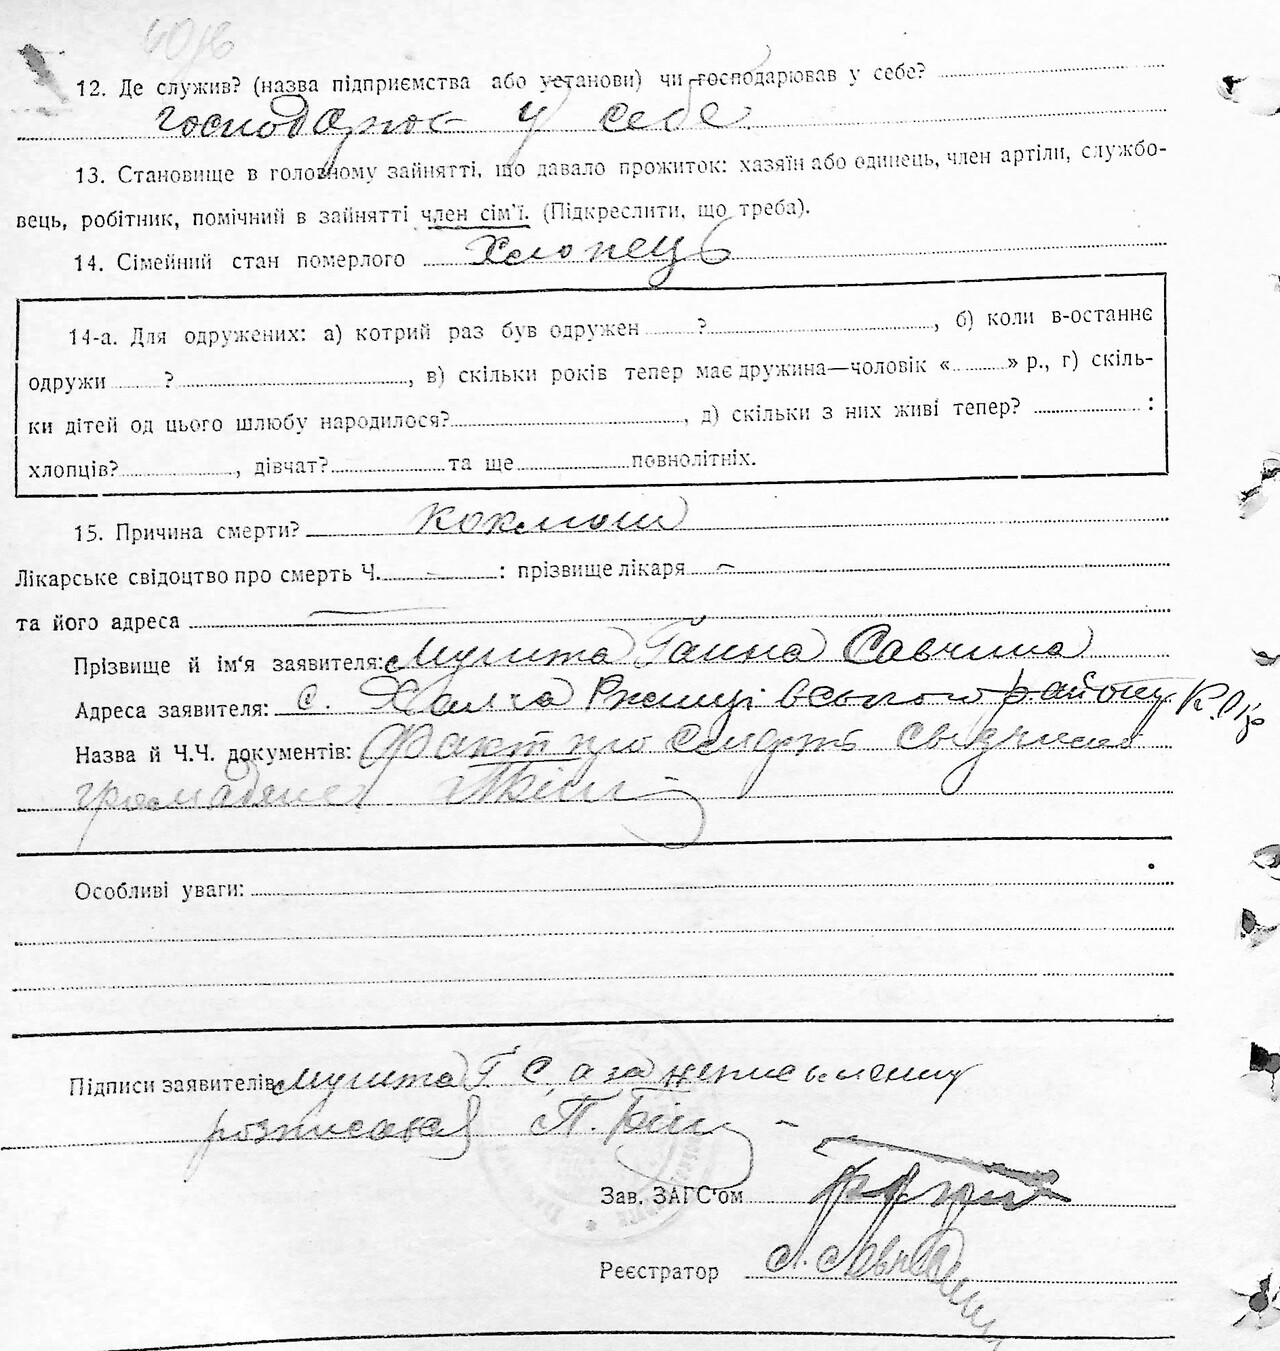 12. Де служив? (назва підприємства або установи) чи господарював у себе?
господарює у себе
13. Становище в головному зайнятті, що давало прожиток: хазяїн або одинець, член артіли, службо-
вець, робітник, помічний в зайнятті член сім'ї. (Підкреслити, що треба).
14. Сімейний стан померлого Хлопець
14-а. Для одружених: а) котрий раз був одружен ?, б) коли в-останнє
одружи ?, в) скільки років тепер має дружина—чоловік « » р., г) скіль-
ки дітей од цього шлюбу народилося?, д) скільки з них живі тепер? :
хлопців?, дівчат? та ще повнолітніх.
15. Причина смерти? коклюш
Лікарське свідоцтво про смерть Ч. - : прізвище лікаря -
та його адреса —
Прізвище й ім'я заявителя: Мушта Ганна Савчина
Адреса заявителя: с. Халча Ржищівського району К.Окр
Назва й Ч.Ч. документів: Факт про смерть свідчить
громадянен
Особливі уваги:
Підписи заявителів Мушта Г С, а за неписьменну
розписався П. Біл
Зав. ЗАГС'ом
Реєстратор